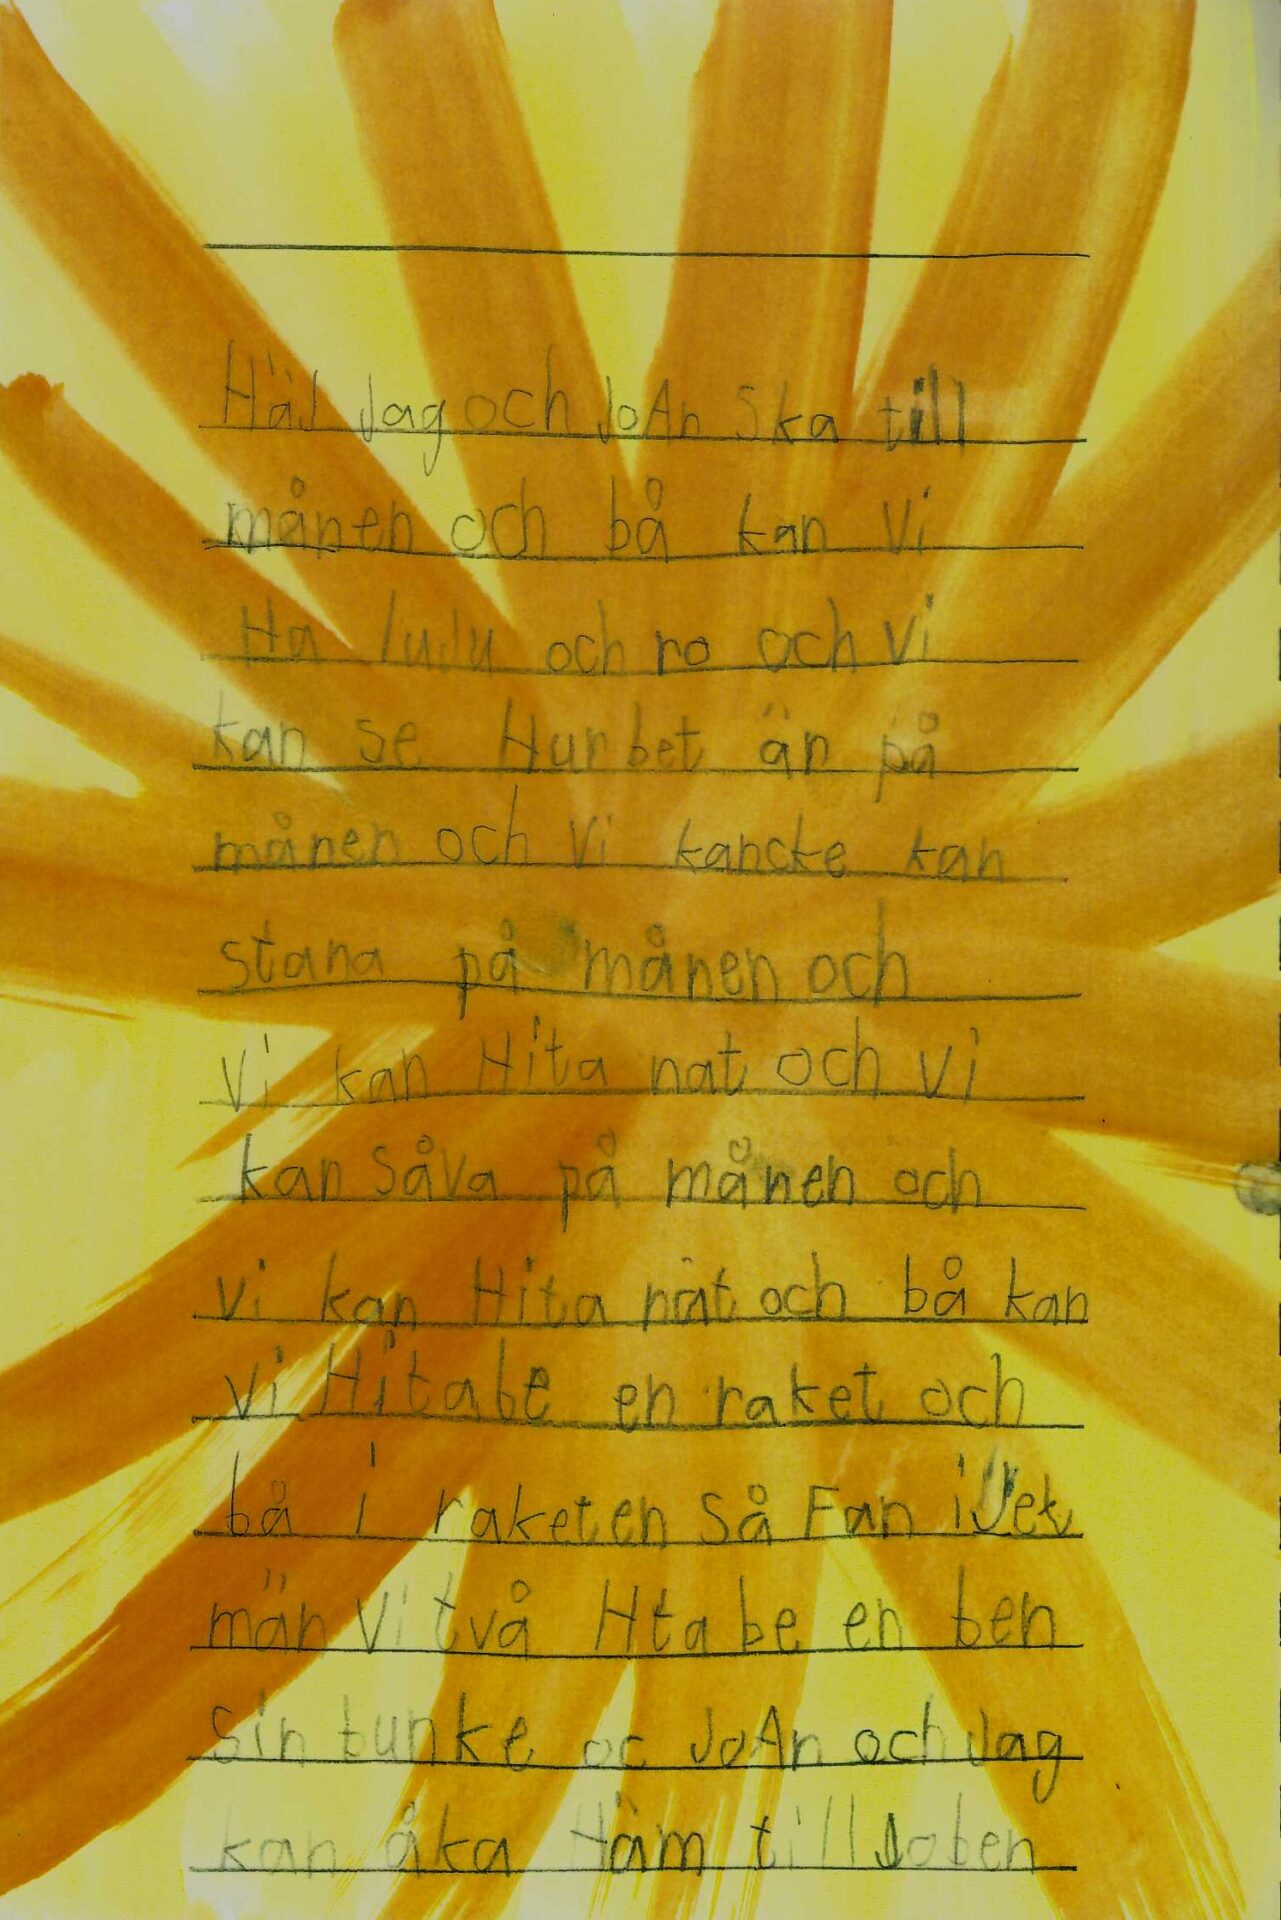 Häj Jag och JoAn Ska till
månen och bå kan Vi
Ha luJu och ro och Vi
kan se Hur bet är på
månen och Vi kancke kan
stana på månen och
Vi kan Hita nat och vi
kan Såva på månen och
vi kan Hita nåt och bå kan
vi Hitabe en raket och
bå i raketen Så Fan i Jet
män Vi två Htabe en ben
Sin tunke oc JoAn och Jag
kan åka Häm till Joben